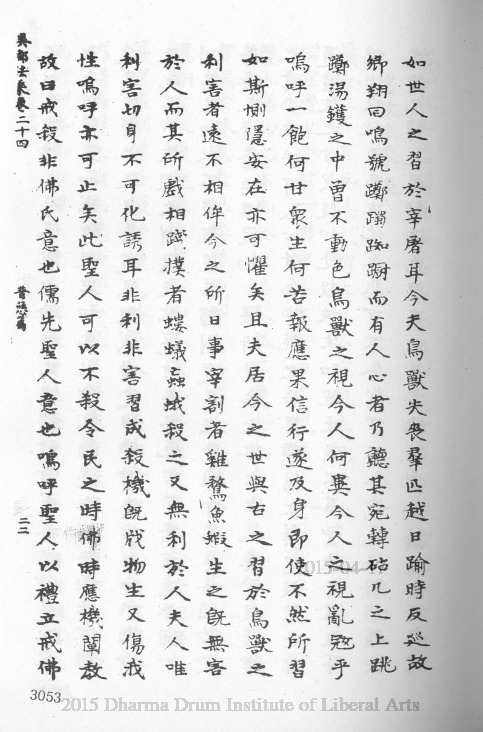 如世人之習於宰屠耳今夫鳥獸失喪羣匹越日踰時反巡故
鄉翔回鳴號躑躅踟躕而有人心者乃聽其宛轉砧几之上跳
躑湯鑊之中曾不動色鳥獸之視今人何異今人之視亂冦乎
嗚呼一飽何甘衆生何苦報應果信行遂及身即使不然所習
如斯惻隱安在亦可懼矣且夫居今之世與古之習於鳥獸之
利害者遠不相侔今之所日事宰割者雞鶩魚蝦生之旣無害
於人而其所戲相躑撲者螻蟻蝨蛾殺之又無利於人夫人唯
利害切身不可化誘耳非利非害習成殺機旣戕物生又傷我
性嗚呼亦可止矣此聖人可以不殺令民之時佛時應機闡教
故曰戒殺非佛氏意也儒先聖人意也嗚呼聖人以禮立戒佛
吳都法乘卷二十四 普慈篇 二二
3053
2015 Dharma Drum Institute of Liberal Arts